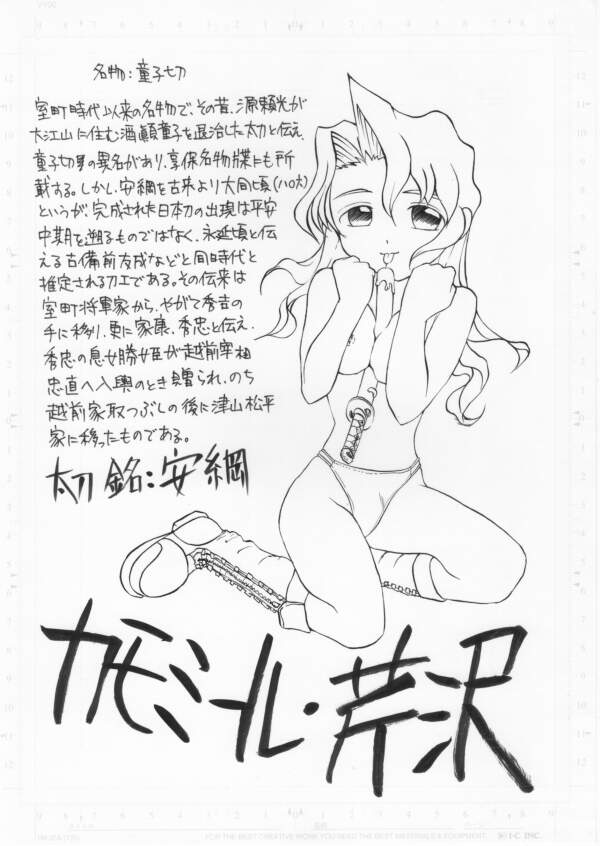 名物:童子切
室町時代以来の名物で、その昔、源頼光が
大江山に住む酒顛童子を退治した太刀と伝え、
童子切の異名があり、享保名物牒にも所
載する。しかし、安綱を古来より大同頃(八〇六)
というが、完成された日本刀の出現は平安
中期を遡るものではなく、永延頃と伝
える古備前友成などと同時代と
推定される刀工である。その伝来は
室町将軍家から、やがて秀吉の
手に移り、更に家康、秀忠と伝え、
秀忠の息女勝姫が越前宰相
忠直へ入輿のとき贈られ、のち
越前家取つぶしの後に津山松平
家に移ったものである。
太刀 銘:安綱
カモミール・芹沢
FOR THE BEST CREATIVE WORK, YOU NEED THE BEST MATERIALS & EQUIPMENT.
I-C INC.